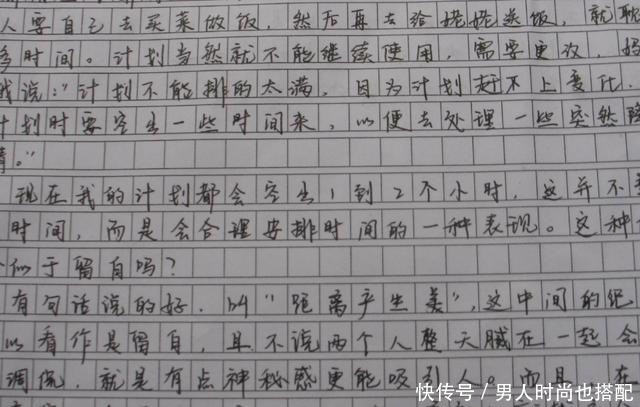 人要自己去买菜做饭，然后再去给姥姥送饭，就
多时间。计划当然就不能继续使用，需要更改，
我说："计划不能排的太满，因为计划赶不上变化，
计划时要空出一些时间来，以便去处理一些突然
情。"
现在我的计划都会空出1到2个小时，这并不
时间，而是会合理安排时间的一种表现。这种
似于留白吗？
有句话说的好，叫"距离产生美"，这中间的
以看作是留白，且不说两个人整天腻在一起会
调侃，就是有点神秘感更能吸引人。而且，在
快传号／男人时尚也搭配